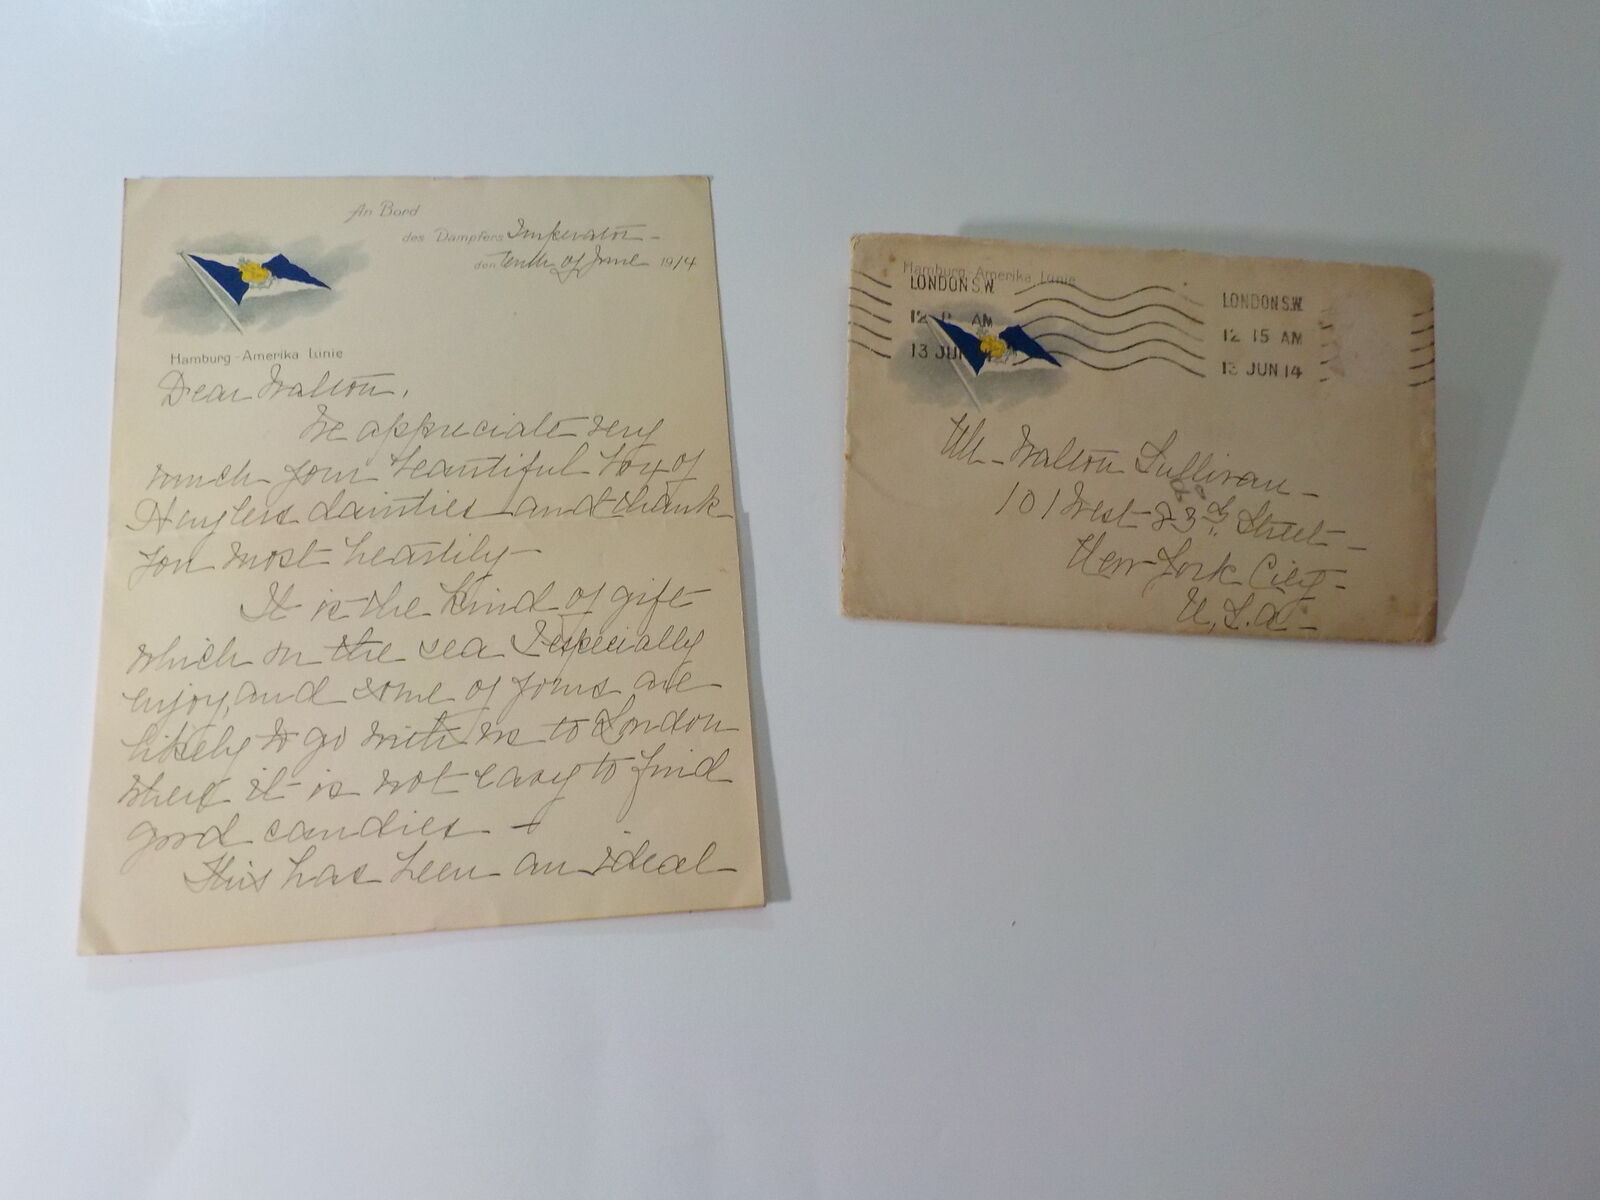 An Bord
des Dampfers Imperator -
den tenth of June 1914
Hamburg-Amerika Linie
Dear Walton,
We appreciate very
much your beautiful box of
Huylers dainties and thank
you most heartily -
It is the kind of gift
which on the sea I especially
enjoy, and some of yours are
likely to go with us to London
where it is not easy to find
good candies -
This has been an ideal
Hamburg-Amerika Linie
LONDON S.W.
12 AM
13 JUN
LONDON S.W.
12 15 AM
13 JUN 14
Mr - Walton Sullivan -
101 West 23rd Street -
New York City -
U.S.A -